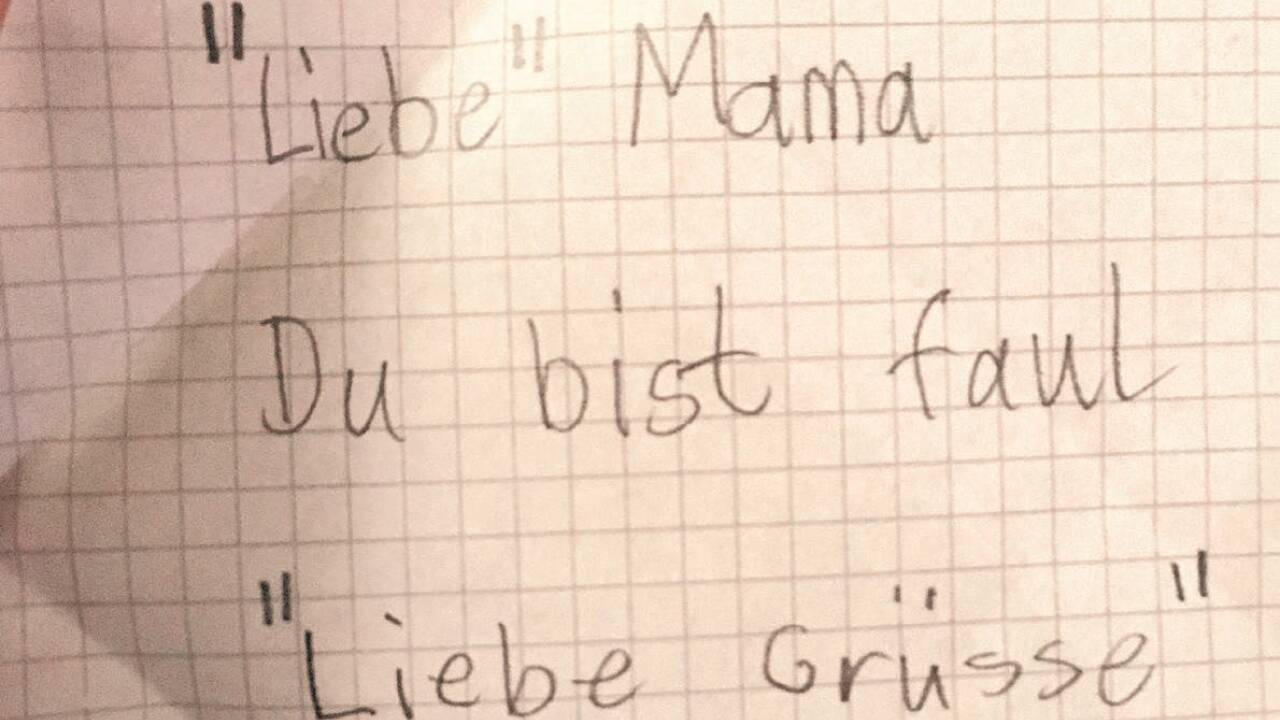 "Liebe" Mama
Du bist faul
"Liebe Grüsse"